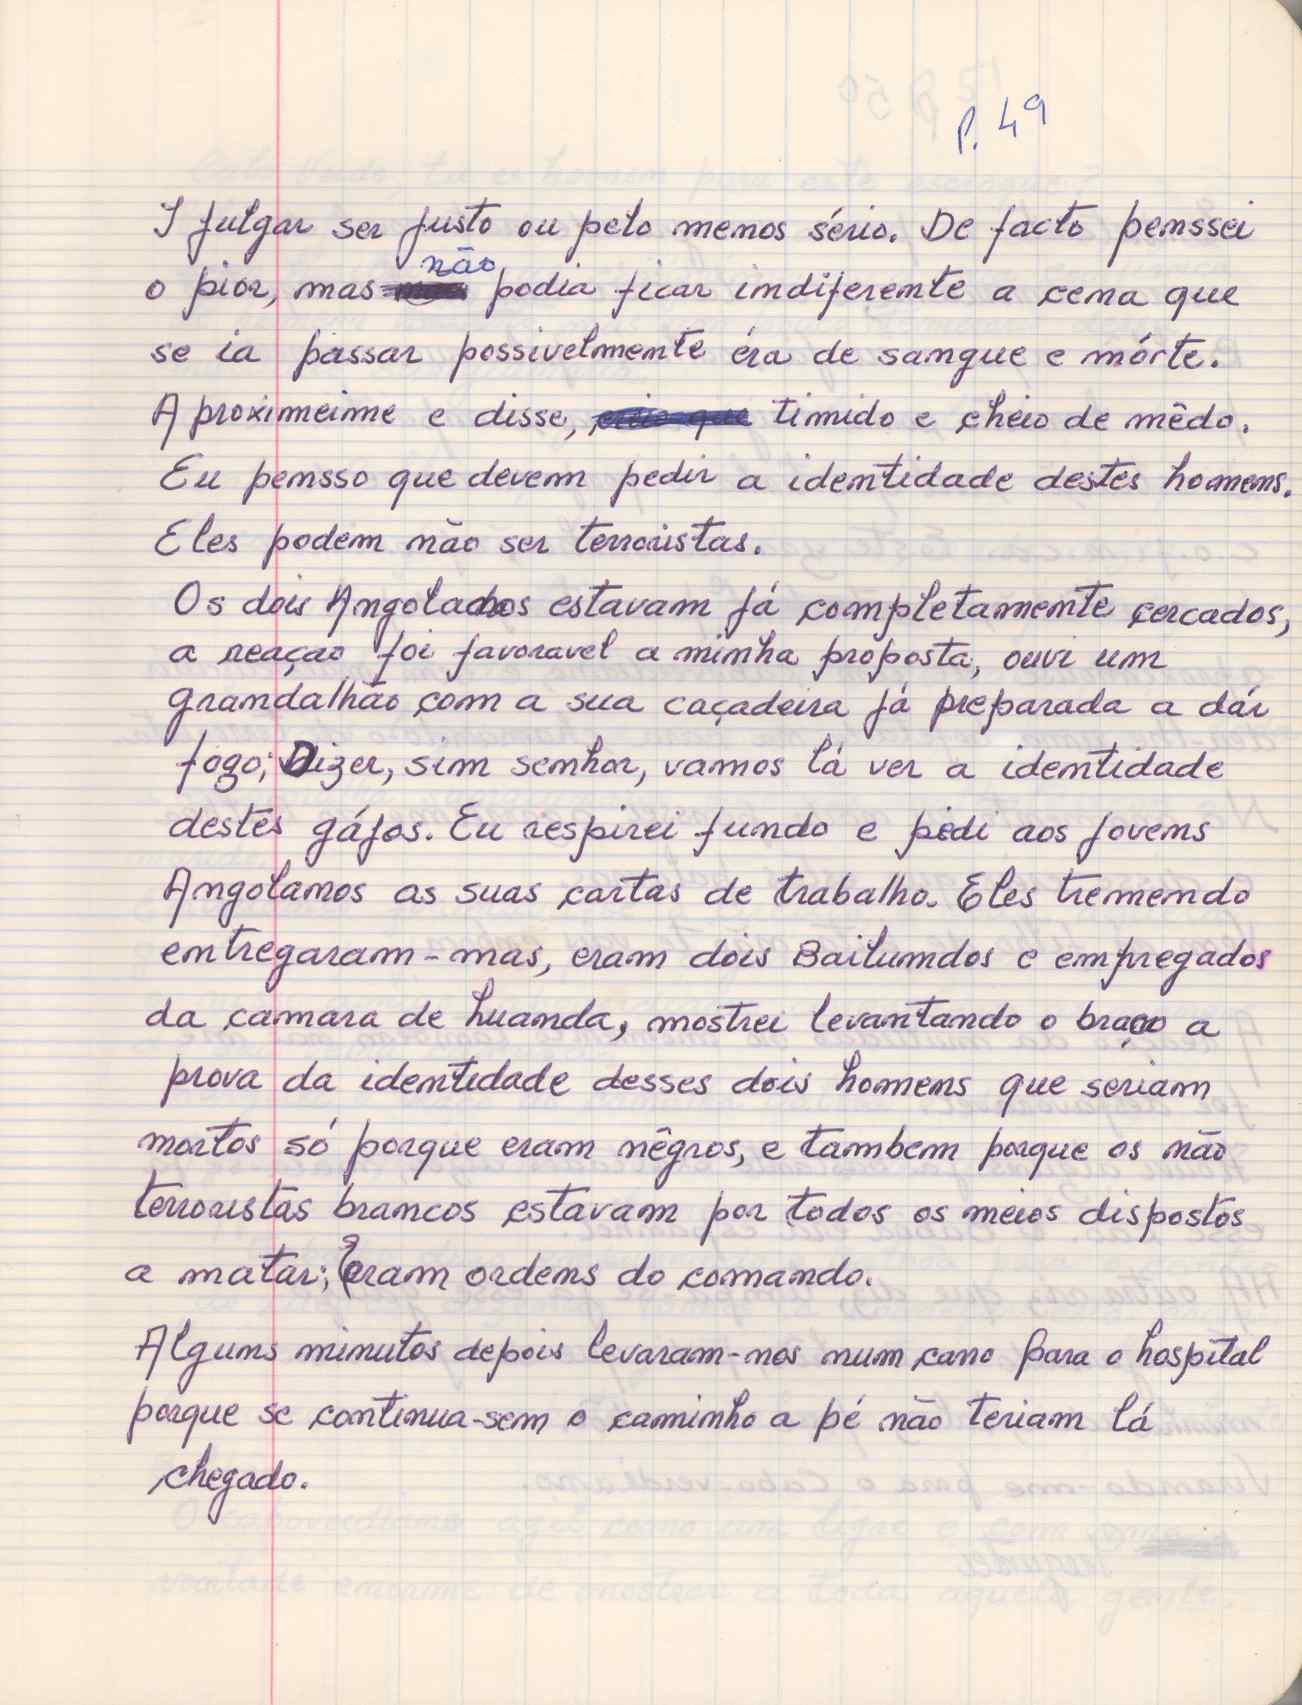 P. 49
I julgar ser justo ou pelo menos sério. De facto penssei
o pior, mas não podia ficar indiferente a cena que
se ia passar possivelmente éra de sangue e mórte.
Aproximeime e disse, timido e cheio de mêdo.
Eu pensso que devem pedir a identidade destes homens.
Eles podem não ser terroristas.
Os dois Angolanos estavam já completamente cercados,
a reaçao foi favoravel a minha proposta, ouvi um
grandalhão com a sua caçadeira já preparada a dár
fogo; Dizer, sim senhor, vamos lá ver a identidade
destes gájos. Eu respirei fundo e pedi aos jovens
Angolanos as suas cartas de trabalho. Eles tremendo
entregaram-mas, eram dois Bailundos e empregados
da camara de Luanda, mostrei levantando o braço a
prova da identidade desses dois homens que seriam
mortos só porque eram nêgros, e tambem porque os não
terroristas brancos estavam por todos os meios dispostos
a matar; eram ordens do comando.
Alguns minutos depois levaram-nos num carro para o hospital
porque se continua-sem o caminho a pé não teriam lá
chegado.